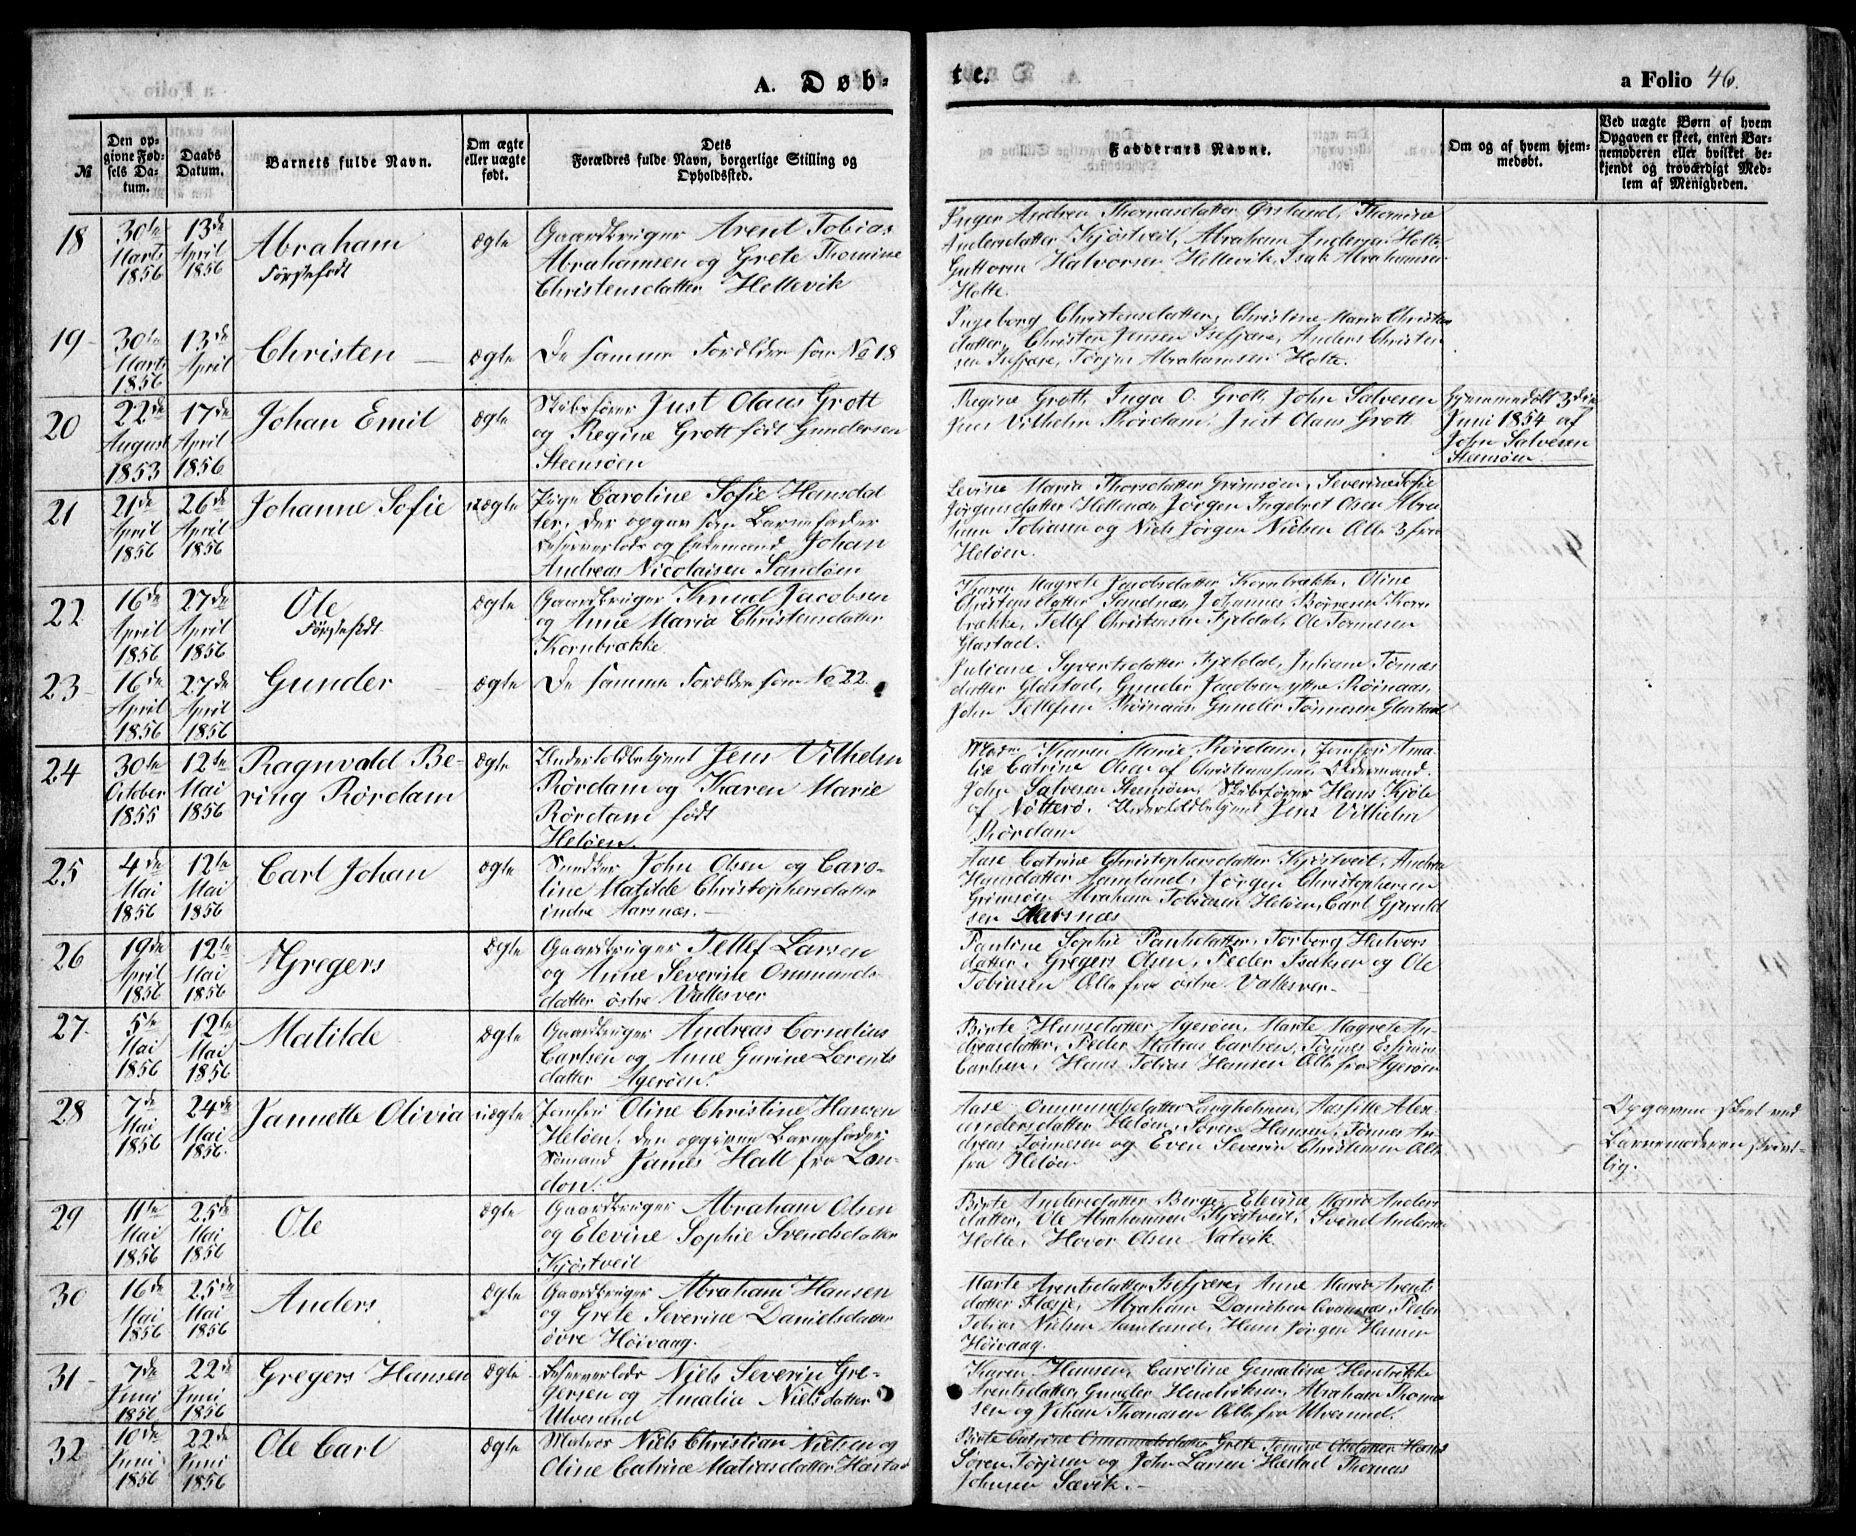 A. Døb-
te.
a Folio 46.
№
Den op-
givne Fød-
sels Da-
tum.
Daabs
Datum.
Barnets fulde Navn.
Om ægte
eller uægte
født.
Dets
Forældres fulde Navn, borgerlige Stilling og
Opholdssted.
Faddernes Navne.
Om og af hvem hjem-
medøbt.
Ved uægte Børn af hvem
Opgaven er skeet, enten Bar-
nemoderen eller hvilket be-
kjendt og troværdigt Med-
lem af Menigheden.
18
30te
Marts
1856
13de
April
1856
Abraham
Førstefødt
ægte
Gaardbruger Arent Tobias
Abrahamsen og Grete Thomine
Christensdatter Hellevik
Inger Andrea Thomasdatter Ørsland, Thomine
Andersdatter Kjøstveil, Abraham Andersen Holte
Guttorm Halvorsen Hellevik, Isak Abrahamsen
Holte.
19
30te
Marts
1856
13de
April
Christen
ægte
De samme Forældre som No 18
Ingeborg Christensdatter, Christine Maria Christens
datter, Christen Jensen Isefjære, Anders Christen
sen Isefjære, Abrahamsen Holte.
20
22de
August
1853
17de
April
1856
Johan Emil
ægte
Skibsfører Just Olaus Grott
og Regine Grott født Gundersen
Steensøen
Regine Grott, Inga O. Grott, John Salvesen
Jens Vilhelm Rørdam, Just Olaus Grott
Hjemmedøbt 3die
Juni 1854 af
John Salvesen
Steensøen.
21
21de
April
1856
26de
April
1856
Johanne Sofie
uægte
Pige Caroline Sofie Hansdat
ter, der opgav som Barnefader
Reservelods og Enkemand Johan
Andreas Nicolaisen Sandøen
Levine Maria Thorsdatter Grimsøen, Severine Sofie
Jørgensdatter Hellenes, Jørgen Ingebret Olsen Abra
ham Tobiasen og Niels Jørgen Nielsen Alle 3 fra
Heløen.
22
16de
April
1856
27de
April
1856
Ole
Førstefødt
ægte
Gaardbruger Knud Jacobsen
og Anne Maria Christensdatter
Kornbrække.
Karen Magrete Jacobsdatter Kornbrække, Oline
Christensdatter Sandnæs, Johannes Børresen Korn
brække, Tellef Christensen Fjeldal, Ole Tønnesen
Glastad.
23
16de
April
1856
27de
April
1856
Gunder
ægte
De samme Forældre som No 22.
Juliane Syvertsdatter Fjeldal, Juliane Tønnes
datter Glastad, Gunder Jacobsen ytre Røinaas,
John Tellefsen Røinaas, Gunder Tønnesen Glastad
24
30te
October
1855
12te
Mai
1856
Ragnvald Be-
ring Rørdam
ægte
Undertoldbetjent Jens Vilhelm
Rørdam og Karen Marie
Rørdam født
Heløen.
Madm Karen Marie Rørdam, Jomfru Ama
lie Catrine Olsen af Christianssand, Oldermand
John Salvesen Steensøen, Skibsfører Hans Kjøle
af Nøtterø, Undertoldbetjent Jens Vilhelm
Rørdam
25
4de
Mai
1856
12te
Mai
1856
Carl Johan
ægte
Snedker John Olsen og Caro-
line Matilde Christophersdatter
indre Aarsnæs.
Aase Catrine Christophersdatter Kjøstveil, Andrea
Hansdatter Aamland, Jørgen Christophersen
Grimsøen, Abraham Tobiasen Heløen, Carl Gjeruld
sen Aarsnæs
26
19de
April
1856
12te
Mai
1856
Gregers
ægte
Gaardbruger Tellef Larsen
og Anne Severine Ommunds-
datter østre Vallesver
Pauline Sophie Paulsdatter, Torborg Halvors
datter, Gregers Olsen, Peder Isaksen og Ole
Tobiasen Alle fra østre Vallesver.
27
5te
Mai
1856
12te
Mai
1856
Matilde
ægte
Gaardbruger Andreas Cornelius
Carlsen og Anne Gurine Lorents
datter Agerøen.
Birte Hansdatter Agerøen, Marte Magrete An-
dreasdatter, Peder Matias Carlsen, Tønnes
Carlsen, Hans Tobias Hansen Alle fra Agerøen
28
7de
Mai
1856
24de
Mai
1856.
Jannette Olivia
uægte
Jomfru Oline Christine Hansen
Heløen, den opgivne Barnefader
Sømand James Hall fra Lon-
don.
Aase Ommundsdatter Langholmen, Alex-
andersdatter Heløen, Søren Hansen, Tønnes An
dreas Tønnesen og Even Severin Christensen Alle
fra Heløen
Opgaven skeet ved
Barnemoderen skrift-
lig.
29
11te
Mai
1856
25de
Mai
1856
Ole
ægte
Gaardbruger Abraham Olsen
og Elevine Sophie Svendsdatter
Kjøstveil
Birte Andersdatter Berge, Elevine Maria Anders
datter, Ole Abrahamsen Kjøstveil, Svend Andersen
Holte, Hovor Olsen Natvik
30
16de
Mai
1856
25de
Mai
1856
Anders
ægte
Gaardbruger Abraham Hansen
og Grete Severine Danielsdatter
øvre Høivaag.
Marte Arentsdatter Isefjære, Anne Maria Arents
datter Flæsje, Abraham Danielsen Peder
Tobias Nielsen Aamland, Hans Jørgen Hansen
Høivaag.
31
7de
Juni
1856
22de
Juni
1856
Gregers Hansen
ægte
Reservelods Niels Severin Gre-
gersen og Amalia Nielsdatter
Ulvesund
Karen Hansen, Caroline Henrikke
Arentsdatter, Gunder Hendriksen, Abraham Thoma
sen og Johan Thomasen Alle fra Ulvesund.
32
10de
Juni
1856
22de
Juni
1856
Ole Carl
ægte
Matros Niels Christian Nielsen og
Oline Catrine Matiasdatter Hæstad
Birte Catrine Ommundsdatter, Grete Tomine Olsdatter, Hans
Søren Torjesen og John Larsen Hæstad Thomas
Johnsen Sævik.